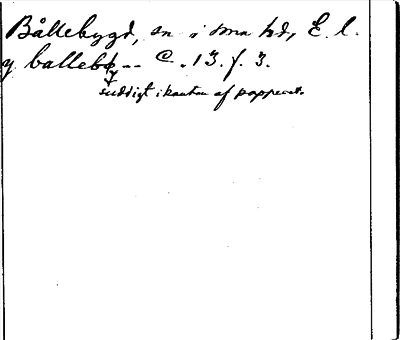 Bållebygd, sn i sma hd, E. l.
y balleby -- C. 13. f. 3.
suddigt i kanten af papperet.